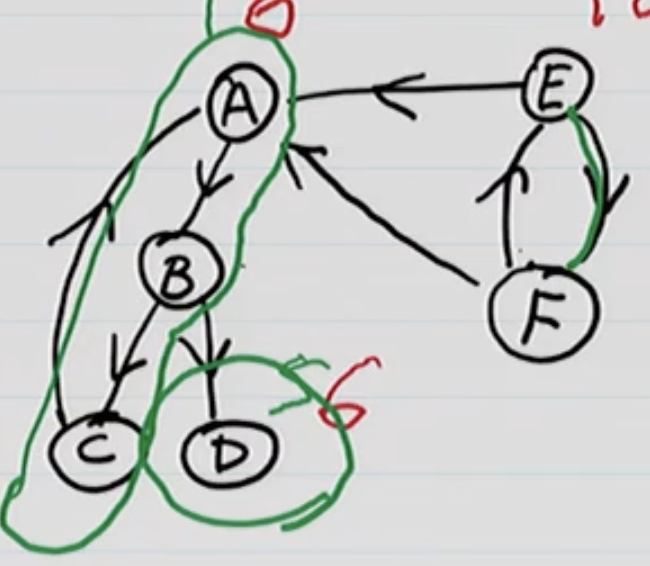 A E
B
F
C D